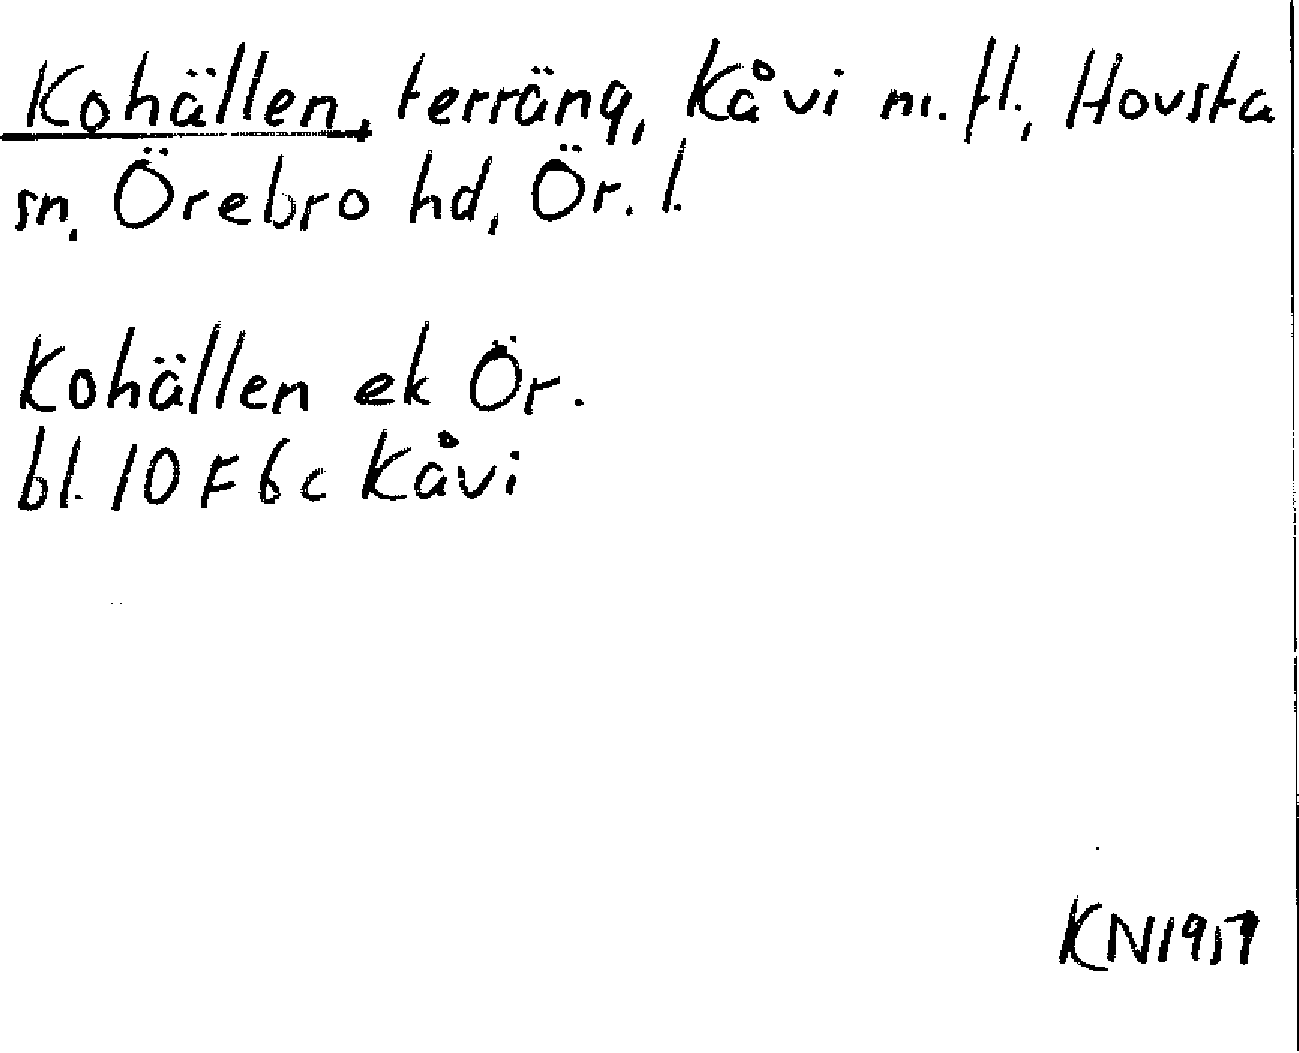 Kohällen, terräng, Kåvi m. fl., Hovsta
sn. Örebro hd, Ör. l.
Kohällen ek Ör.
bl. 10 F 6 c Kåvi